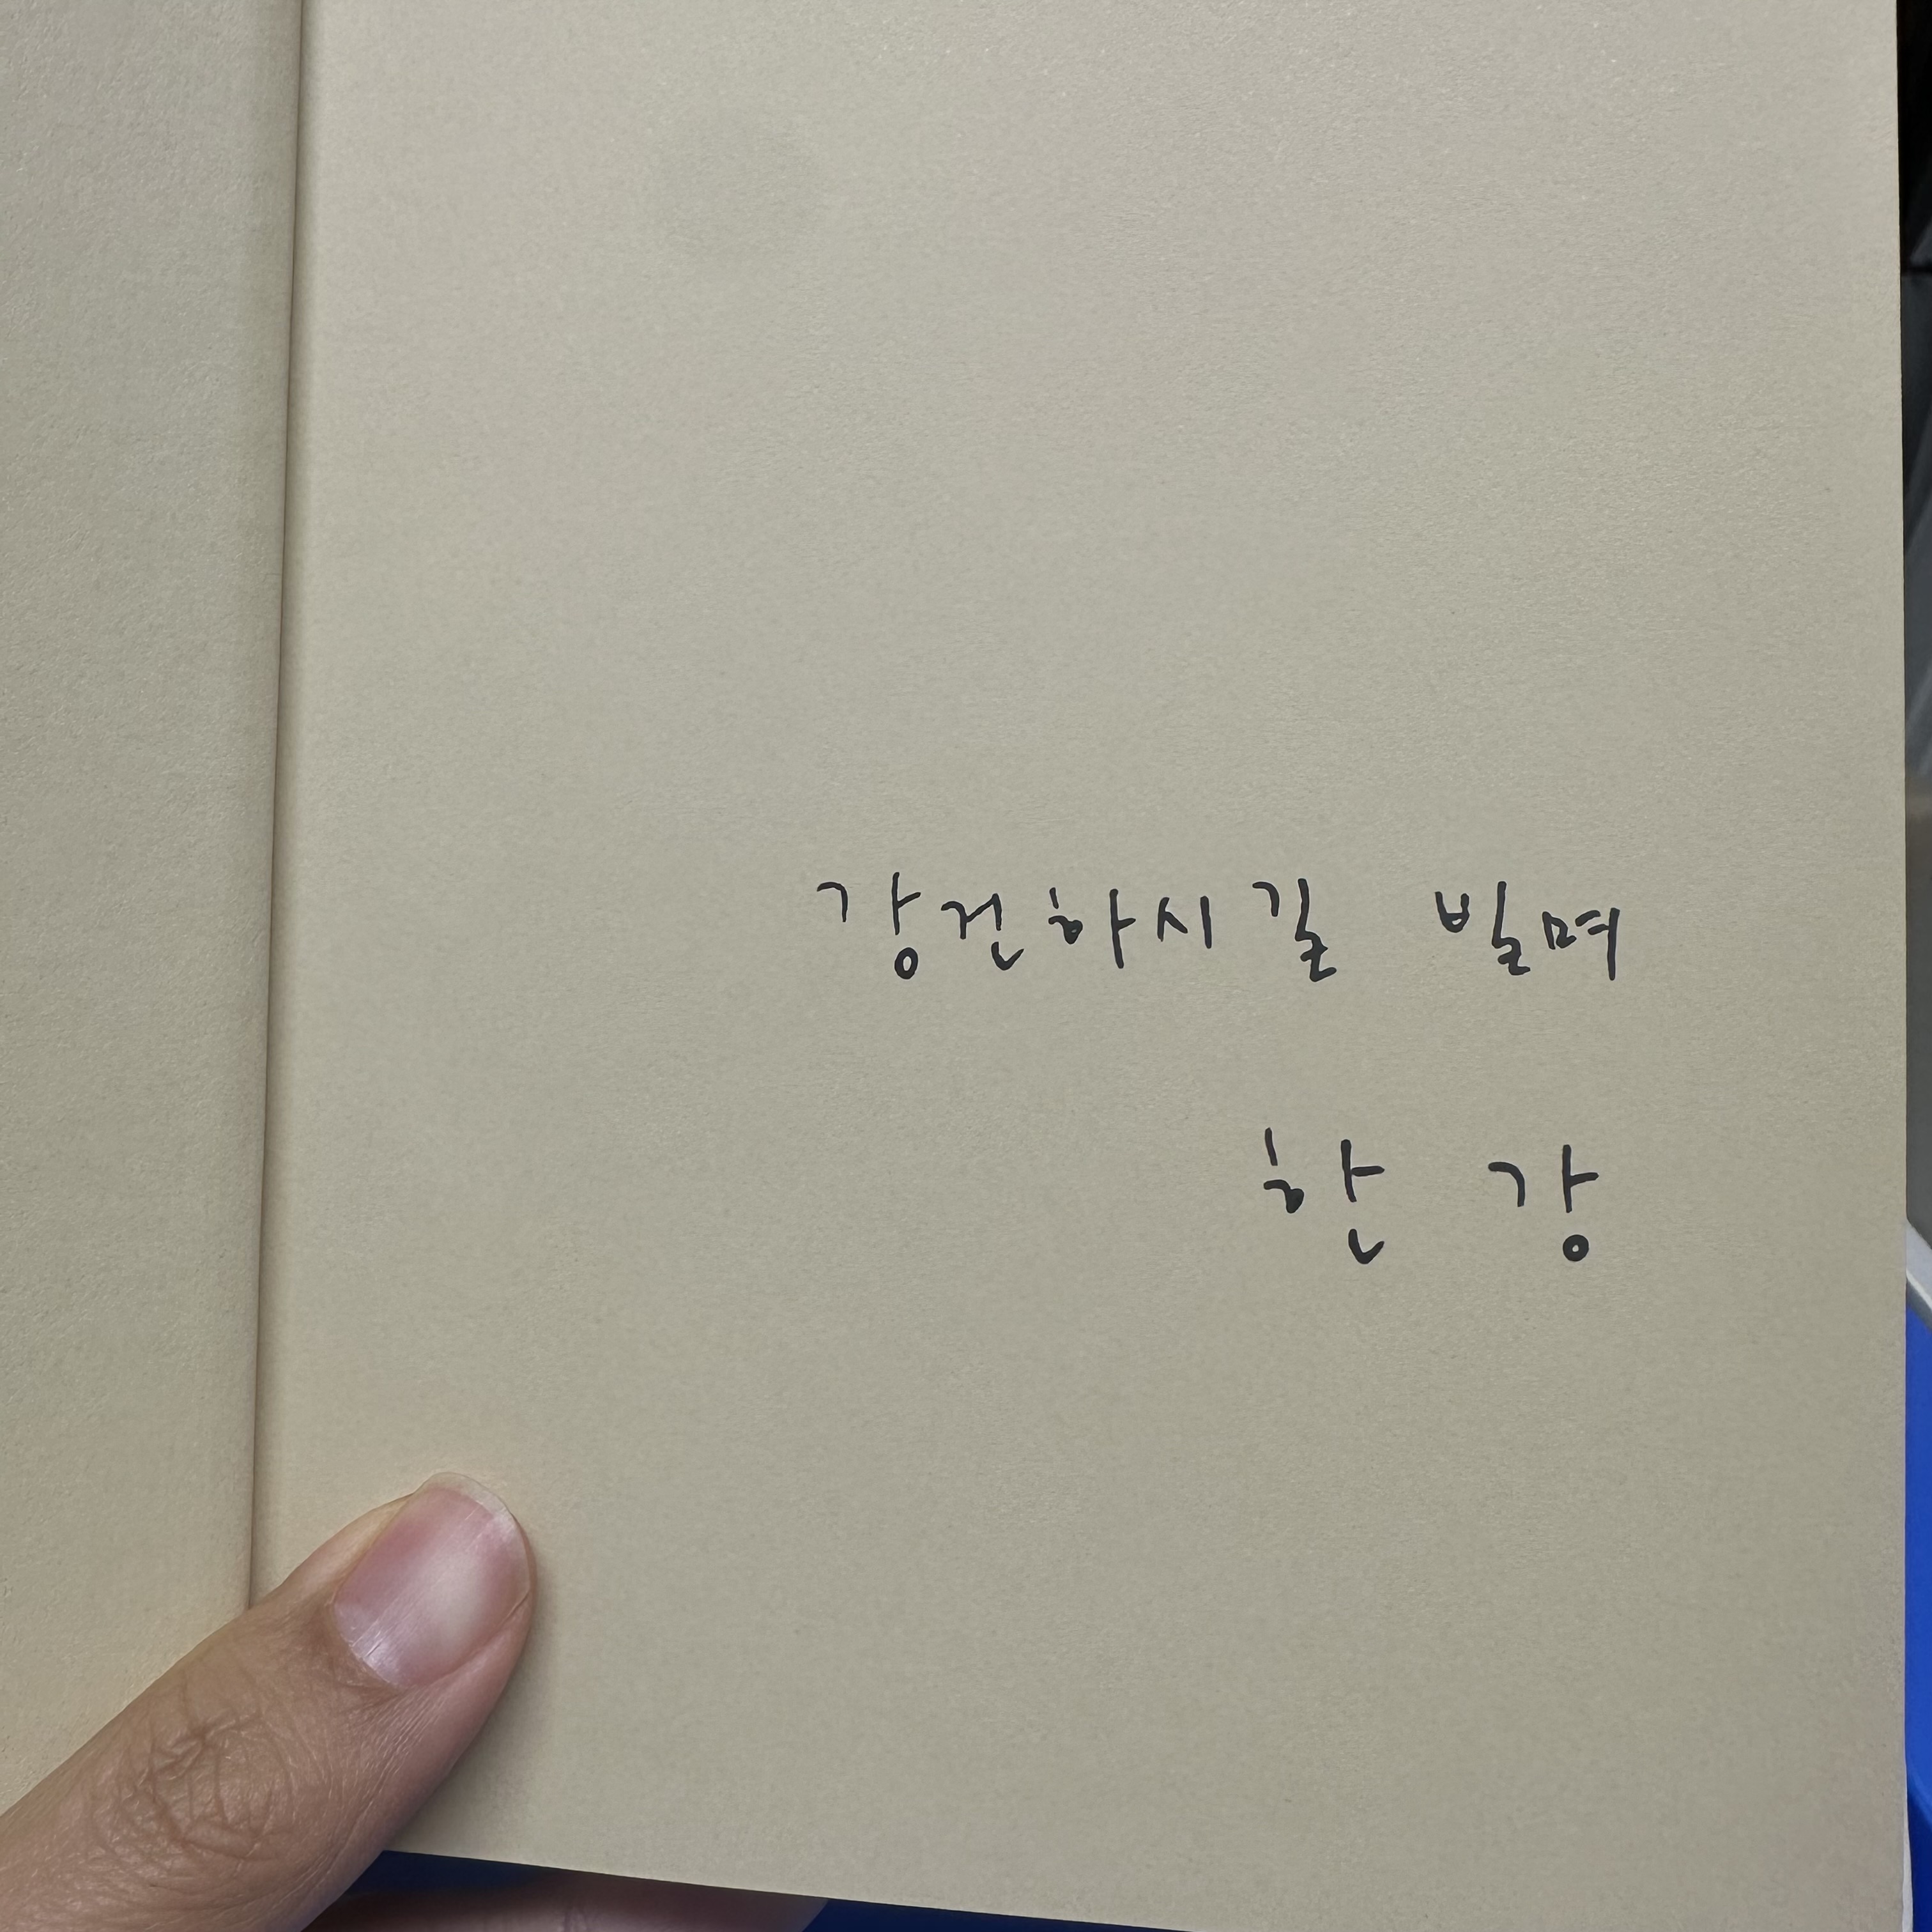 강건하시길 빌며
한 강